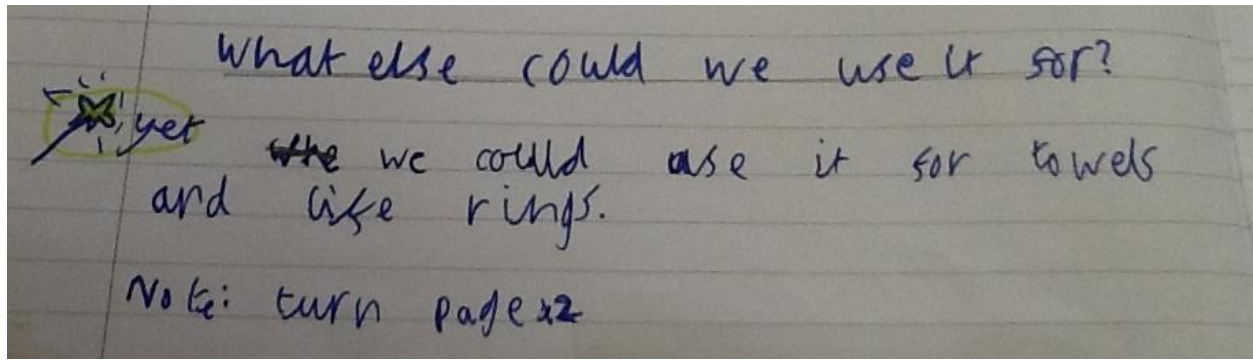 What else could we use it for?
yet
we could use it for towels
and life rings.
Note: turn page x2